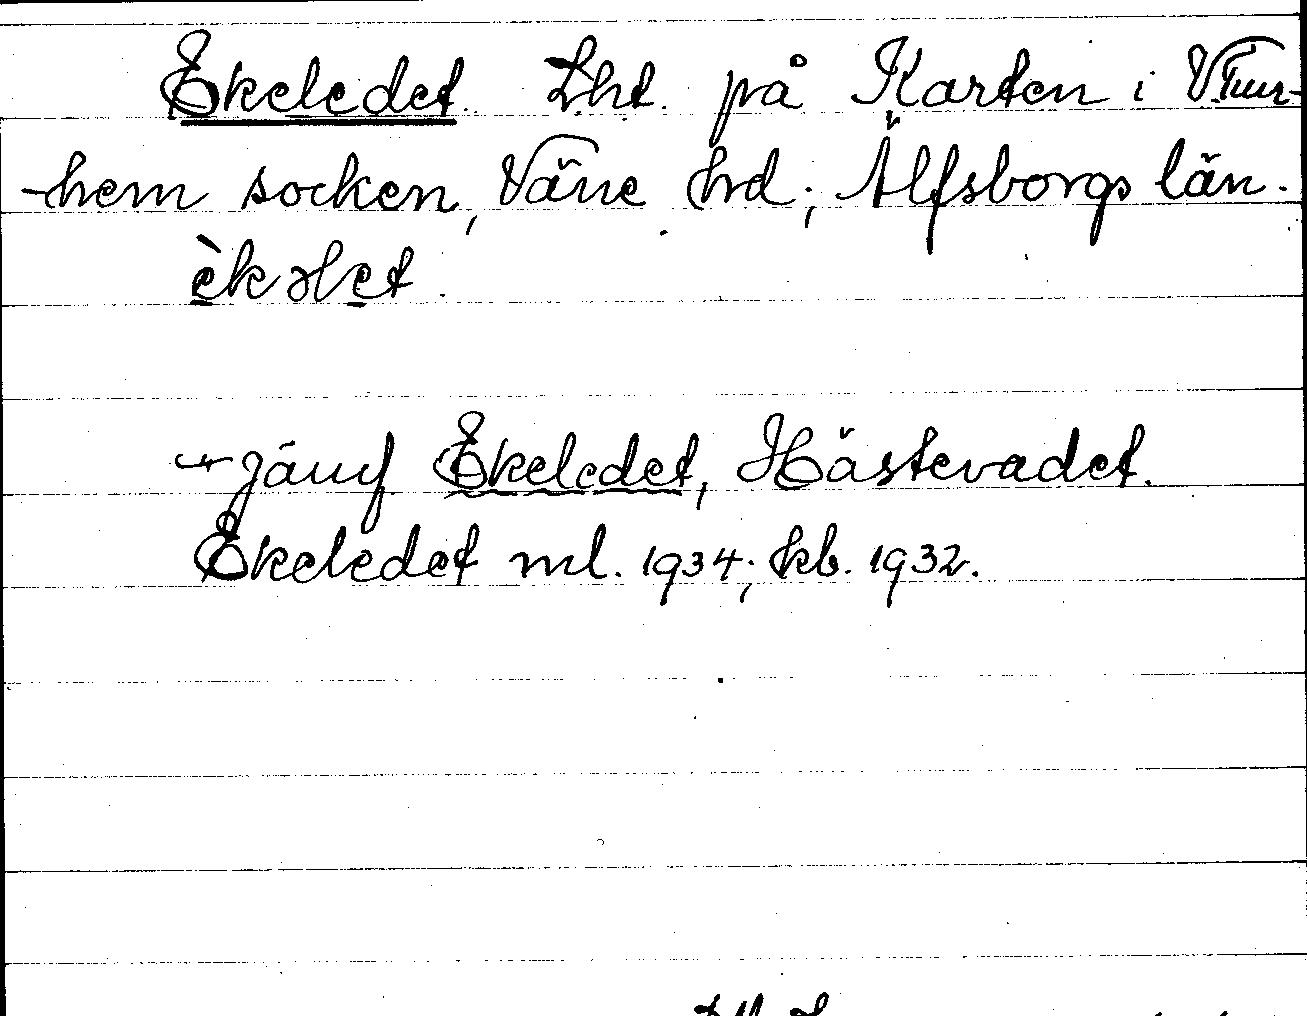 Ekeledet. Lht. på Karten i V. Tun-
-hem socken, Väne hd; Älfsborgs län.
èkəlet.
jämf Ekeledet, Hästevadet.
Ekeledet ml. 1934; kb. 1932.